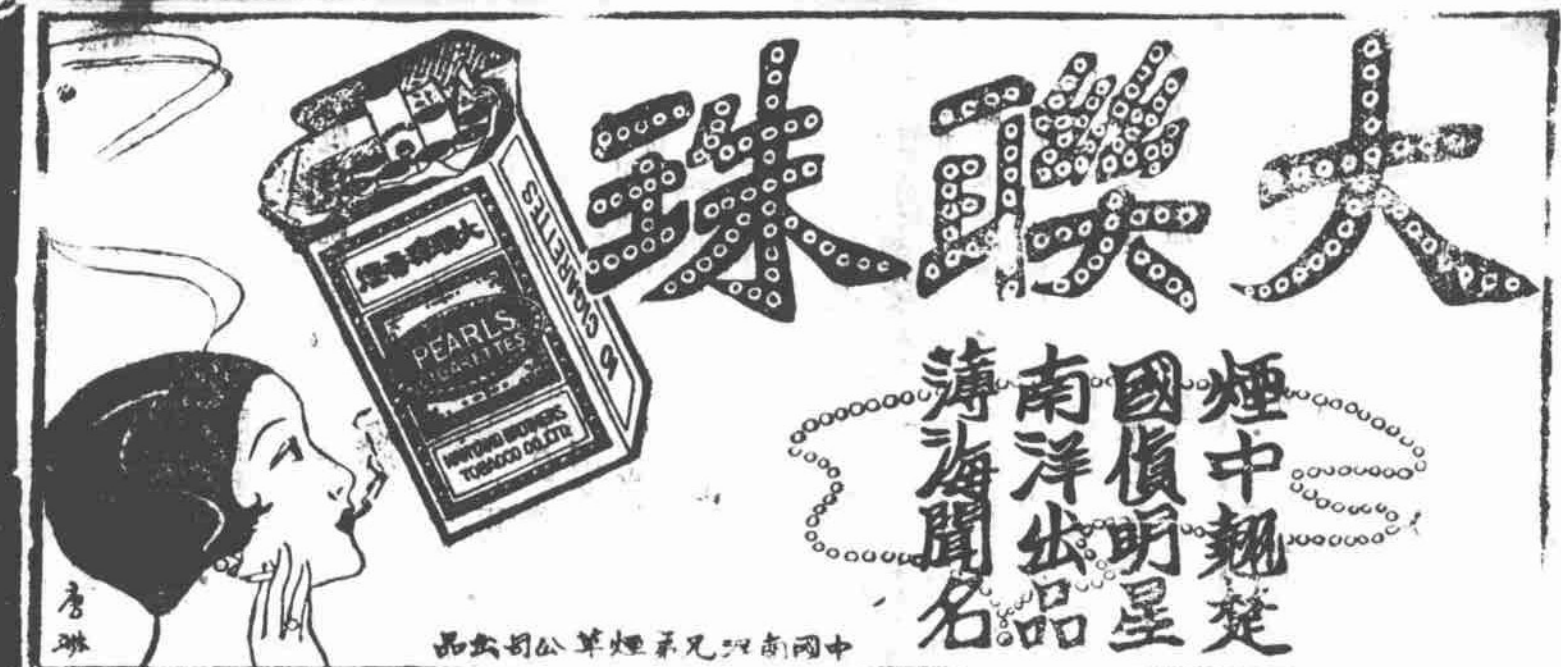 大聯珠
煙中翹楚
國貨明星
南洋出品
薄海聞名
大聯珠香煙
PEARLS
CIGARETTES
NANYANG BROTHERS
TOBACCO CO., LTD.
10 CIGARETTES
中國南洋兄弟煙草公司出品
唐琳